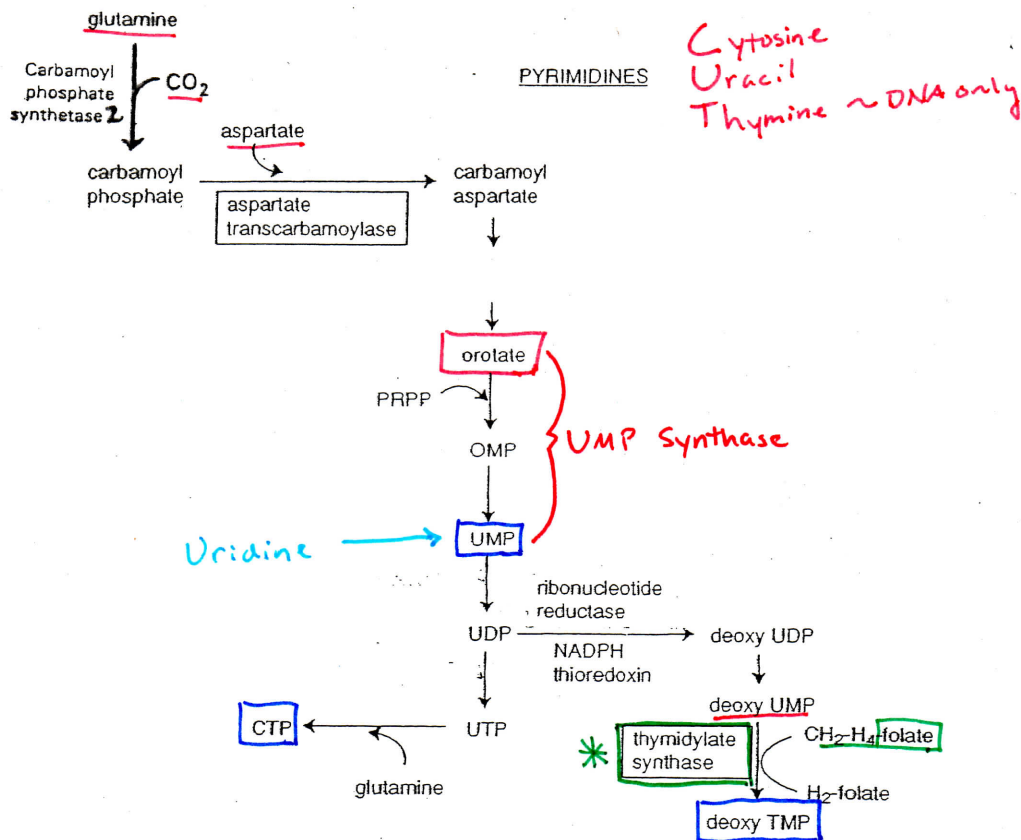 glutamine
Carbamoyl
phosphate
synthetase 2
CO2
PYRIMIDINES
Cytosine
Uracil
Thymine ~ DNA only
aspartate
carbamoyl
phosphate
aspartate
transcarbamoylase
carbamoyl
aspartate
orotate
PRPP
OMP
UMP Synthase
Uridine
UMP
ribonucleotide
reductase
UDP
NADPH
thioredoxin
deoxy UDP
deoxy UMP
CTP
UTP
glutamine
*
thymidylate
synthase
CH2-H4-folate
H2-folate
deoxy TMP